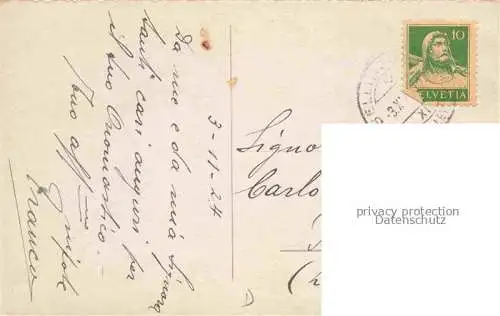 3-11-24
Da me e da mia Signora
tanti cari auguri per
il tuo Onomastico.
Tuo aff
Franco
Signo
Carlo
10
HELVETIA
privacy protection
Datenschutz